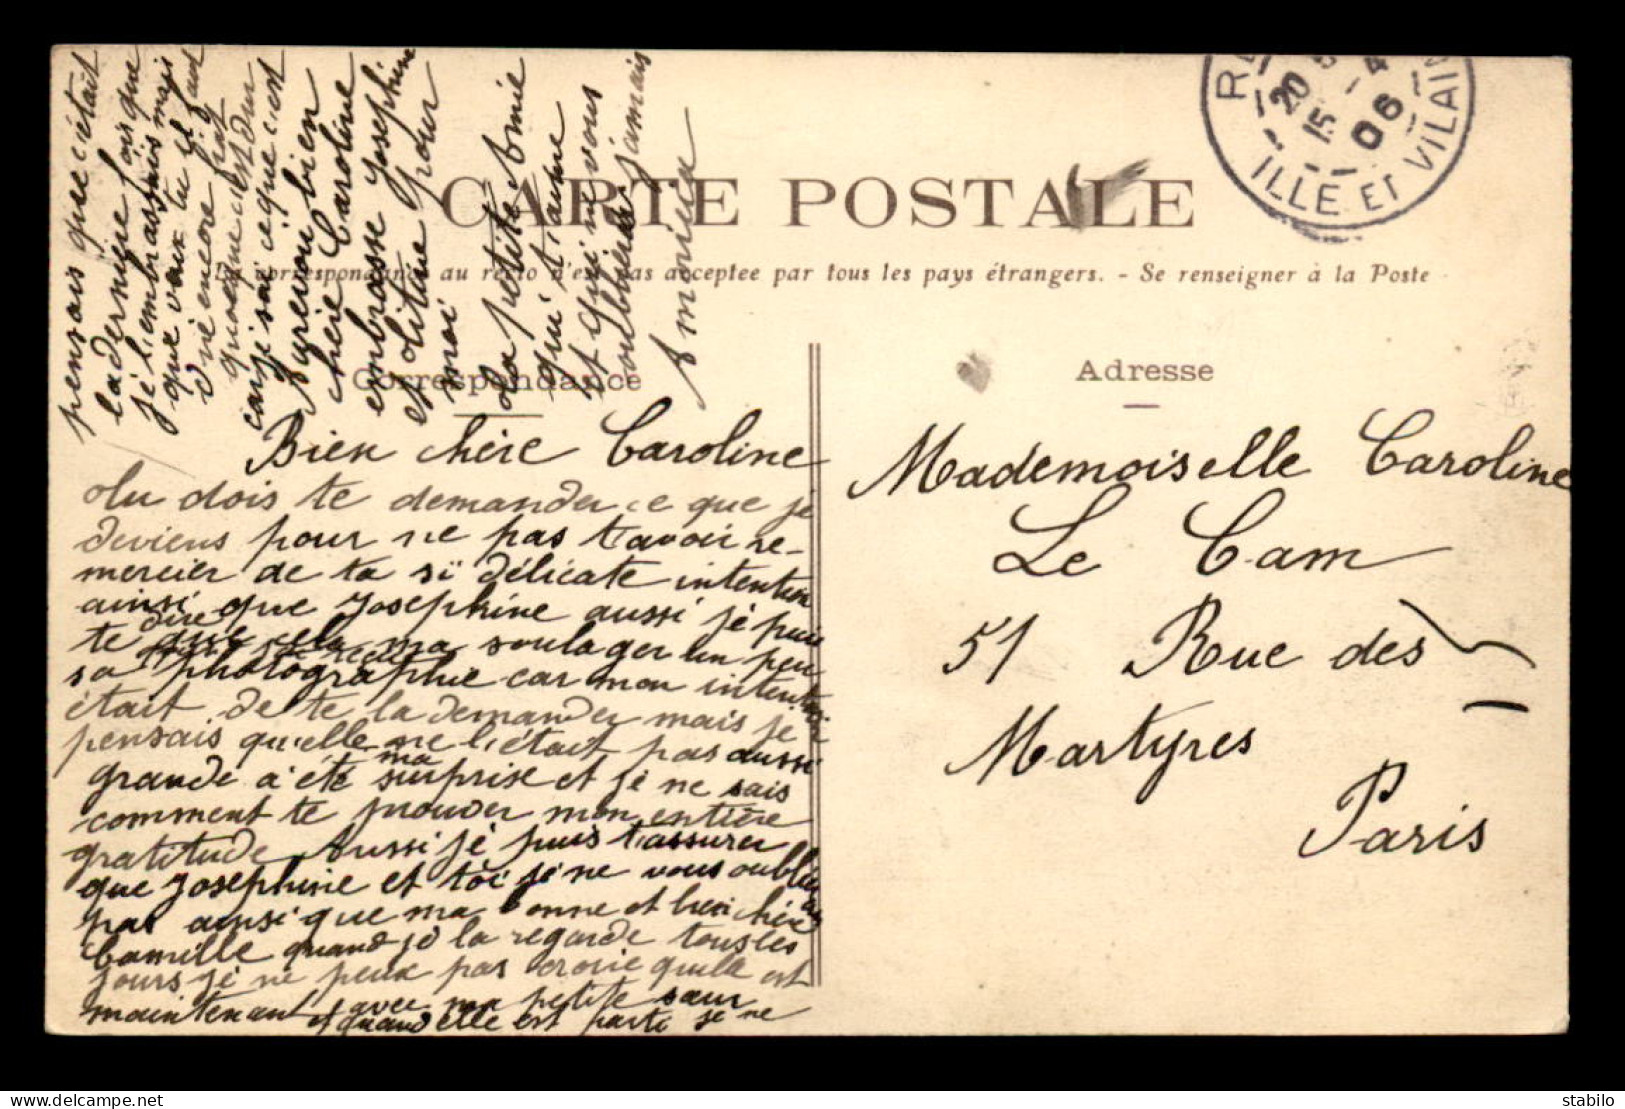 CARTE POSTALE
La correspondance au recto n'est pas acceptee par tous les pays étrangers. - Se renseigner à la Poste
Correspondance
Adresse
20
15 - 4
06
ILLE ET VILAINE
Bien chère Caroline
tu dois te demander ce que je
deviens pour ne pas t'avoir re-
mercier de ta si délicate intention
ainsi que Josephine aussi je puis
te dire que cela ma soulager un peu
sa photographie car mon intention
était de te la demander mais je
pensais qu'elle ne l'était pas aussi
grande a été ma surprise et je ne sais
comment te prouver mon entière
gratitude Aussi je puis t'assurer
que Josephine et toi je ne vous oublierai
pas ainsi que ma bonne et bien chère
Camille quand je la regarde tous les
jours je ne peux pas croire quelle est
maintenant avec ma petite sœur
et quand elle est parti je ne
pensais que c'était
la dernière fois que
je l'embrassais mais
que veux tu il faut
car je sais ce que c'est
Aurevoir bien
chère Caroline
embrasse Josephine
et Titine pour
moi
Ta petite Amie
qui t'aime
et qui ne vous
oubliera jamais
Mademoiselle Caroline
Le Cam
51 Rue des
Martyres
Paris
stabilo